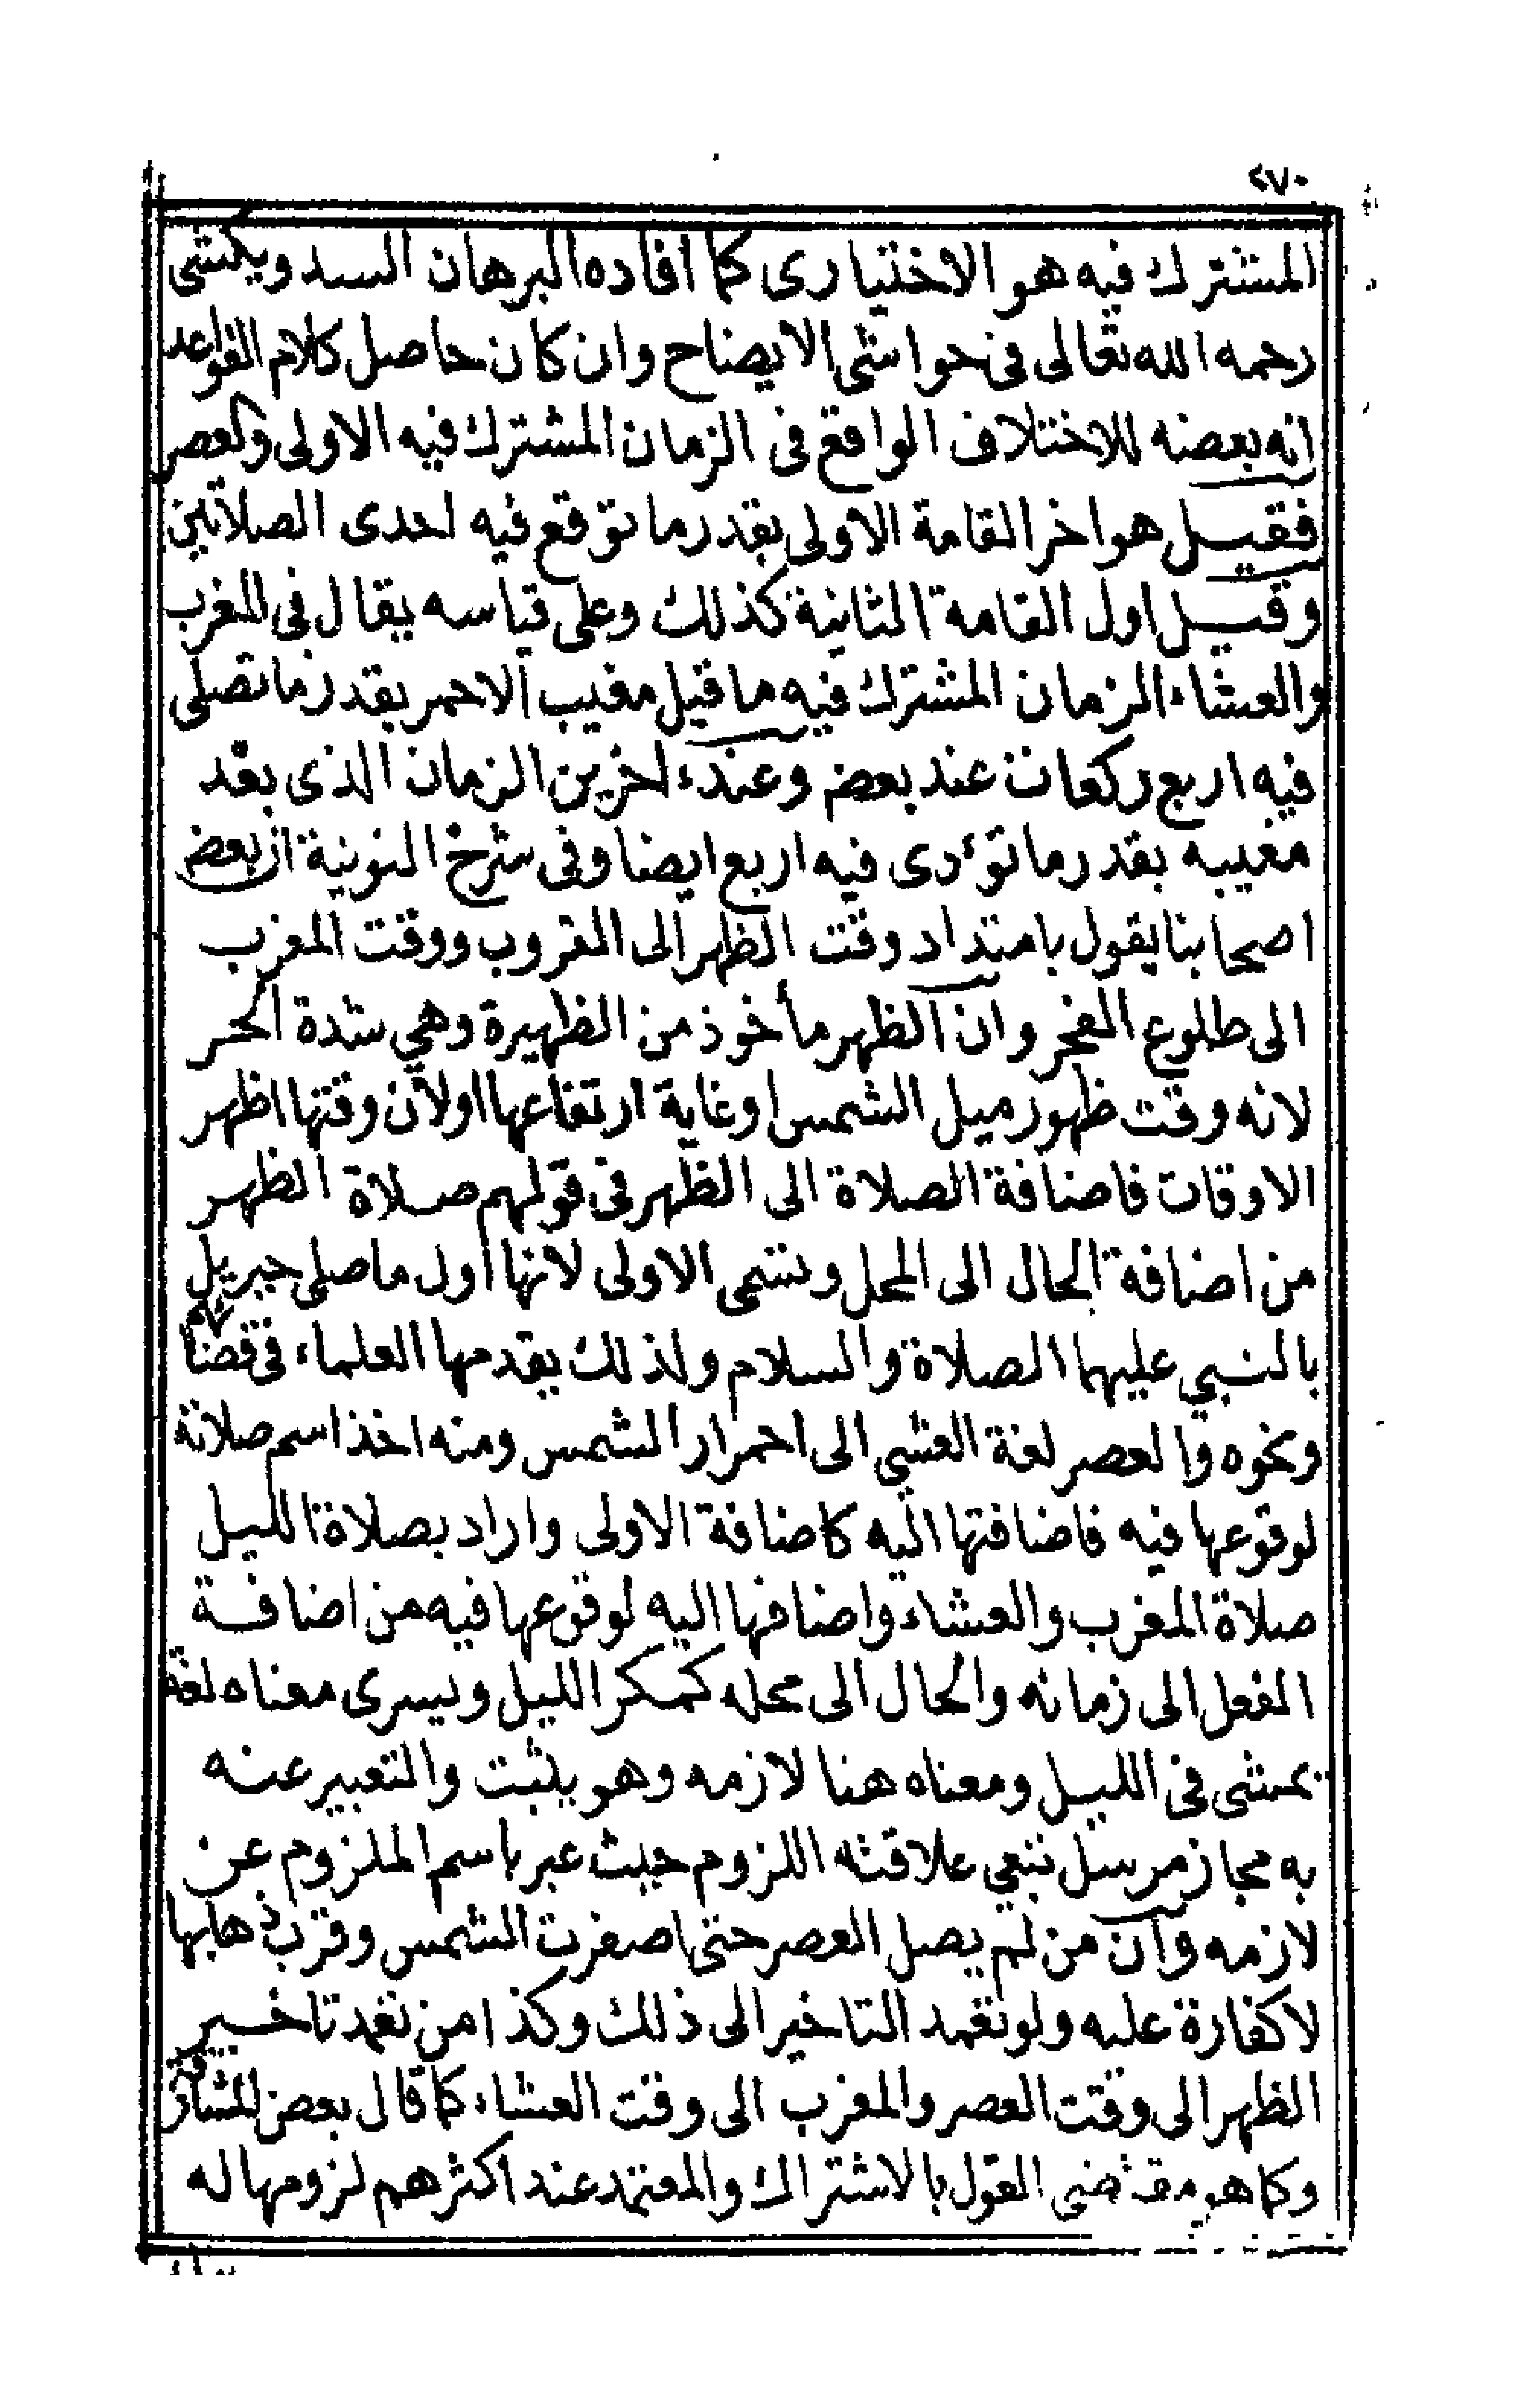 ٢٧٠
المشترك فيه هو الاختيارى كما افاده البرهان السدويكشى
رحمه الله تعالى فى حواشى الايضاح وان كان حاصل كلام القواعد
انه بعضه للاختلاف الواقع فى الزمان المشترك فيه الاولى والعصر
فقيل هو اخر القامة الاولى بقدر ما توقع فيه احدى الصلاتين
وقيل اول القامة الثانية كذلك وعلى قياسه يقال فى المغرب
والعشاء الزمان المشترك فيه ما قبل مغيب الاحمر بقدر ما تصلى
فيه اربع ركعات عند بعض وعند ءاخرين الزمان الذى بعد
مغيبه بقدر ما تؤدى فيه اربع ايضا وفى شرح النونية ان بعض
اصحابنا يقول بامتداد وقت الظهر الى الغروب ووقت المغرب
الى طلوع الفجر وان الظهر مأخوذ من الظهيرة وهي شدة الحر
لانه وقت ظهور ميل الشمس او غاية ارتفاعها او لأن وقتها اظهر
الاوقات فاضافة الصلاة الى الظهر فى قولهم صلاة الظهر
من اضافة الحال الى المحل وتسمى الاولى لانها اول ما صلى جبريل
بالنبي عليهما الصلاة والسلام ولذلك يقدمها العلماء فى قضائها
ونحوه والعصر لغة العشي الى احمرار الشمس ومنه اخذ اسم صلاته
لوقوعها فيه فاضافتها اليه كاضافة الاولى واراد بصلاة الليل
صلاة المغرب والعشاء واضافها اليه لوقوعها فيه من اضافة
الفعل الى زمانه والحال الى محله كمكر الليل ويسرى معناه لغة
يمشى فى الليل ومعناه هنا لازمه وهو يثبت والتعبير عنه
به مجاز مرسل تبعي علاقته اللزوم حيث عبر باسم الملزوم عن
لازمه وان من لم يصل العصر حتى اصفرت الشمس وقرب ذهابها
لا كفارة عليه ولو تعمد التاخير الى ذلك وكذا من تعمد تاخير
الظهر الى وقت العصر والمغرب الى وقت العشاء كما قال بعض المشارقة
وكما هو مقتضى القول بالاشتراك والمعتمد عند اكثرهم لزومها له